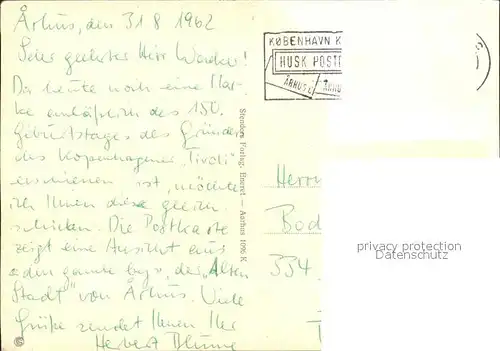 Århus, den 31 8 1962
Sehr geehrter Herr Worder!
Da heute noch eine Mar-
ke anläßlich des 150.
Geburtstages des Gründers
des Kopenhagener "Tivoli"
erschienen ist, möchte
ich Ihnen diese gleich
schicken. Die Postkarte
zeigt eine Ansicht aus
"den gamle by", der "Alten
Stadt" von Århus. Viele
Grüße sendet Ihnen Ihr
Herbert Blume
Stenders Forlag. Eneret — Aarhus 1096 K
KØBENHAVN K
HUSK POST
ÅRHUS C
ÅRHU
Herrn
Bod
334
privacy protection
Datenschutz